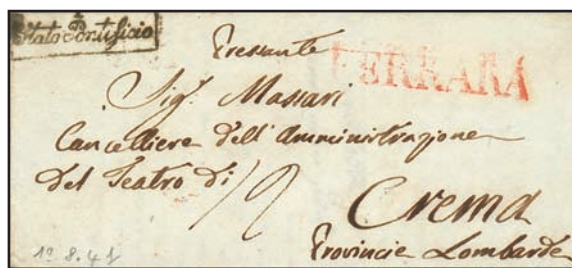 Stato Pontificio
FERRARA
Pressante
Sig.r Massari
Cancelliere dell'Amministrazione
del Teatro di
Crema
Provincie Lombarde